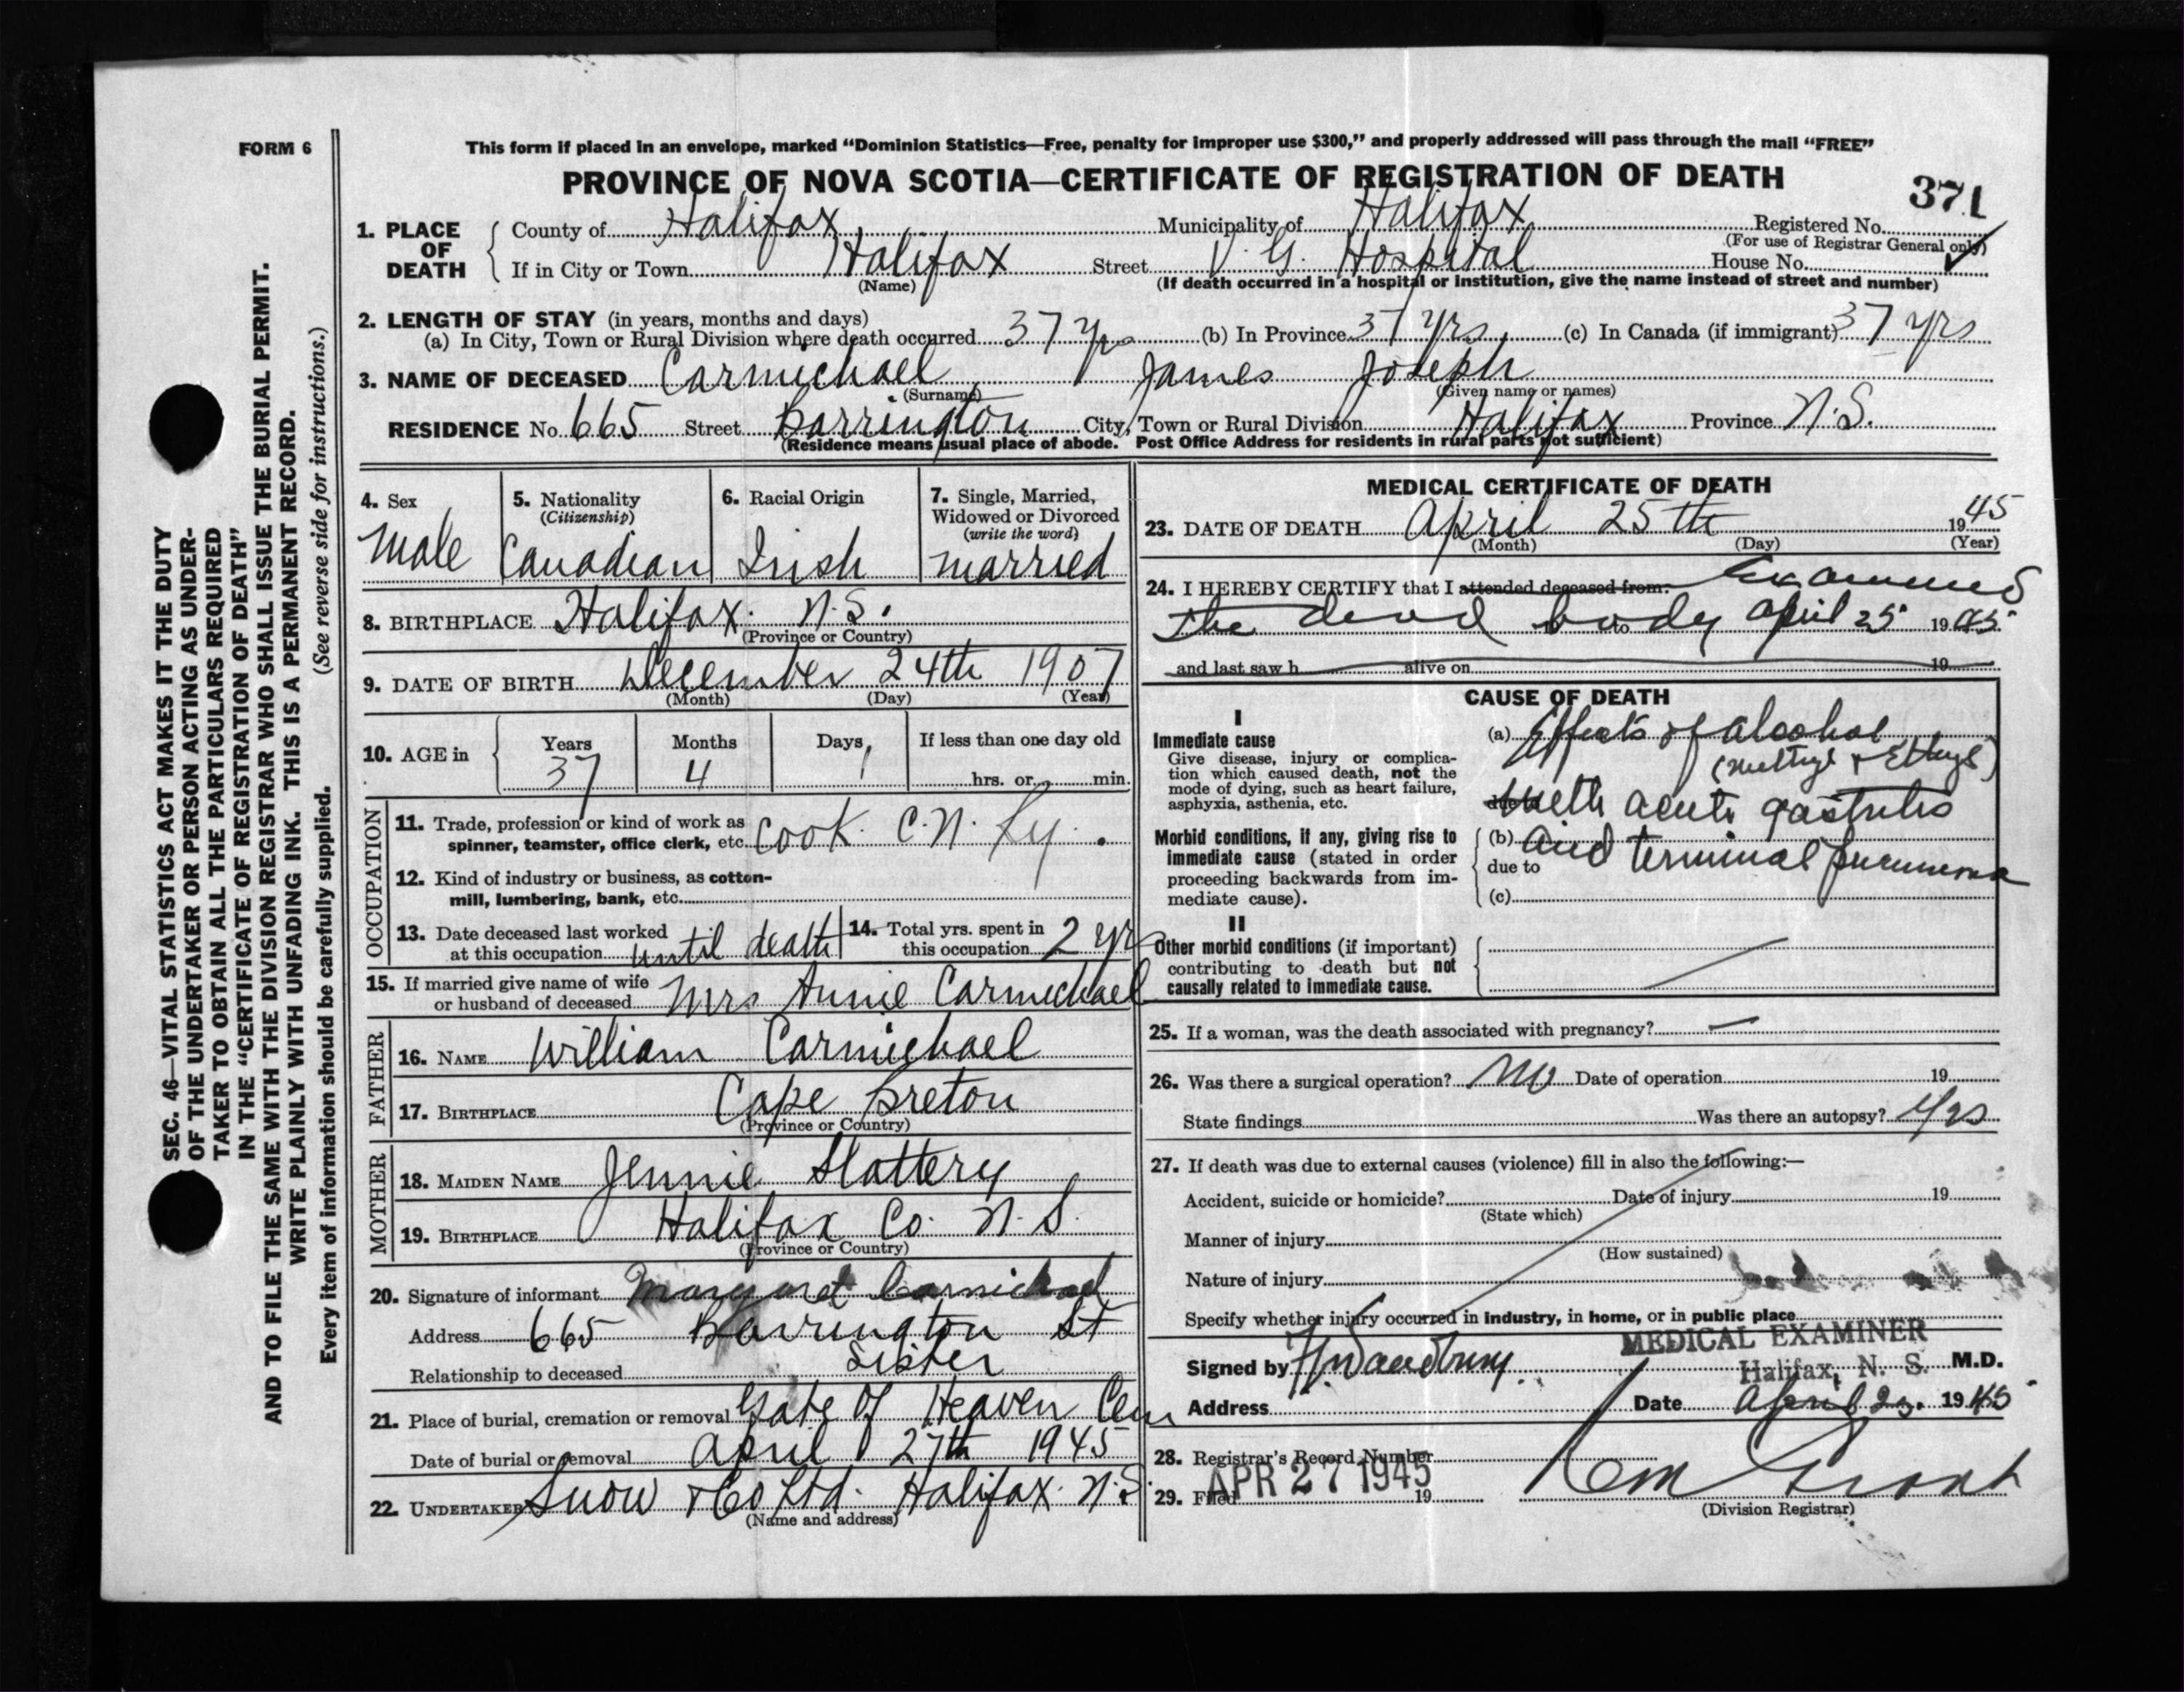 FORM 6
This form if placed in an envelope, marked “Dominion Statistics—Free, penalty for improper use $300,” and properly addressed will pass through the mail “FREE”
PROVINCE OF NOVA SCOTIA—CERTIFICATE OF REGISTRATION OF DEATH
371
1. PLACE OF DEATH
County of Halifax Municipality of Halifax Registered No.
(For use of Registrar General only)
If in City or Town Halifax Street V. G. Hospital House No.
(Name) (If death occurred in a hospital or institution, give the name instead of street and number)
2. LENGTH OF STAY (in years, months and days)
(a) In City, Town or Rural Division where death occurred 37 yrs (b) In Province 37 yrs (c) In Canada (if immigrant) 37 yrs
3. NAME OF DECEASED Carmichael James Joseph
(Surname) (Given name or names)
RESIDENCE No. 665 Street Barrington City, Town or Rural Division Halifax Province N.S.
(Residence means usual place of abode. Post Office Address for residents in rural parts not sufficient)
4. Sex
Male
5. Nationality
(Citizenship)
Canadian
6. Racial Origin
Irish
7. Single, Married,
Widowed or Divorced
(write the word)
married
8. BIRTHPLACE Halifax. N.S.
(Province or Country)
9. DATE OF BIRTH December 24th 1907
(Month) (Day) (Year)
10. AGE in
Years Months Days If less than one day old
37 4 1 hrs. or min.
OCCUPATION
11. Trade, profession or kind of work as
spinner, teamster, office clerk, etc. Cook C.N. Ry.
12. Kind of industry or business, as cotton-
mill, lumbering, bank, etc.
13. Date deceased last worked
at this occupation until death
14. Total yrs. spent in
this occupation 2 yrs
15. If married give name of wife
or husband of deceased Mrs Annie Carmichael
FATHER
16. NAME William Carmichael
17. BIRTHPLACE Cape Breton
(Province or Country)
MOTHER
18. MAIDEN NAME Jennie Slattery
19. BIRTHPLACE Halifax Co. N.S.
(Province or Country)
20. Signature of informant Margaret Carmichael
Address 665 Barrington St
Relationship to deceased sister
21. Place of burial, cremation or removal Gate of Heaven Cem
Date of burial or removal April 27th 1945
22. UNDERTAKER Snow & Co Ltd. Halifax. N.S.
(Name and address)
MEDICAL CERTIFICATE OF DEATH
23. DATE OF DEATH April 25th 1945
(Month) (Day) (Year)
24. I HEREBY CERTIFY that I attended deceased from: Examined
the dead body to April 25 1945
and last saw h alive on 19
CAUSE OF DEATH
I
Immediate cause
Give disease, injury or complica-
tion which caused death, not the
mode of dying, such as heart failure,
asphyxia, asthenia, etc.
(a) Effects of alcohol
(methyl & Ethyl)
due to with acute gastritis
Morbid conditions, if any, giving rise to
immediate cause (stated in order
proceeding backwards from im-
mediate cause).
(b) and terminal pneumonia
due to
(c)
II
Other morbid conditions (if important)
contributing to death but not
causally related to immediate cause.
25. If a woman, was the death associated with pregnancy? —
26. Was there a surgical operation? No Date of operation 19
State findings Was there an autopsy? Yes
27. If death was due to external causes (violence) fill in also the following:—
Accident, suicide or homicide? Date of injury 19
(State which)
Manner of injury
(How sustained)
Nature of injury
Specify whether injury occurred in industry, in home, or in public place
MEDICAL EXAMINER
Signed by Halifax, N. S. M.D.
Address Date April 1945
28. Registrar's Record Number
29. Filed APR 27 1945 19
(Division Registrar)
SEC. 46—VITAL STATISTICS ACT MAKES IT THE DUTY
OF THE UNDERTAKER OR PERSON ACTING AS UNDER-
TAKER TO OBTAIN ALL THE PARTICULARS REQUIRED
IN THE “CERTIFICATE OF REGISTRATION OF DEATH”
AND TO FILE THE SAME WITH THE DIVISION REGISTRAR WHO SHALL ISSUE THE BURIAL PERMIT.
WRITE PLAINLY WITH UNFADING INK. THIS IS A PERMANENT RECORD.
(See reverse side for instructions.)
Every item of information should be carefully supplied.